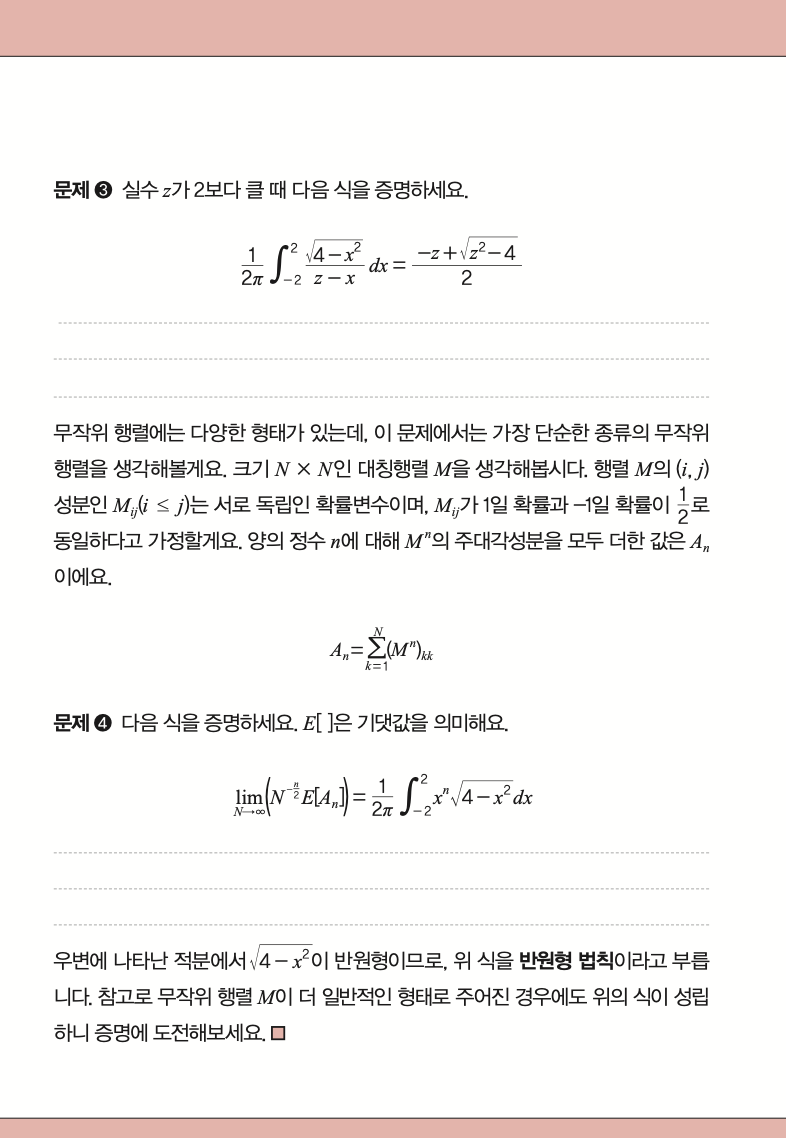 문제 ❸ 실수 z가 2보다 클 때 다음 식을 증명하세요.
\frac{1}{2π} \int_{-2}^{2} \frac{\sqrt{4-x^2}}{z-x} dx = \frac{-z+\sqrt{z^2-4}}{2}
무작위 행렬에는 다양한 형태가 있는데, 이 문제에서는 가장 단순한 종류의 무작위
행렬을 생각해볼게요. 크기 N × N인 대칭행렬 M을 생각해봅시다. 행렬 M의 (i, j)
성분인 M_{ij}(i ≤ j)는 서로 독립인 확률변수이며, M_{ij}가 1일 확률과 −1일 확률이 \frac{1}{2}로
동일하다고 가정할게요. 양의 정수 n에 대해 M^n의 주대각성분을 모두 더한 값은 A_n
이에요.
A_n = \sum_{k=1}^{N} (M^n)_{kk}
문제 ❹ 다음 식을 증명하세요. E[ ]은 기댓값을 의미해요.
\lim_{N→∞} (N^{-\frac{n}{2}} E[A_n]) = \frac{1}{2π} \int_{-2}^{2} x^n \sqrt{4-x^2} dx
우변에 나타난 적분에서 \sqrt{4-x^2}이 반원형이므로, 위 식을 반원형 법칙이라고 부릅
니다. 참고로 무작위 행렬 M이 더 일반적인 형태로 주어진 경우에도 위의 식이 성립
하니 증명에 도전해보세요.